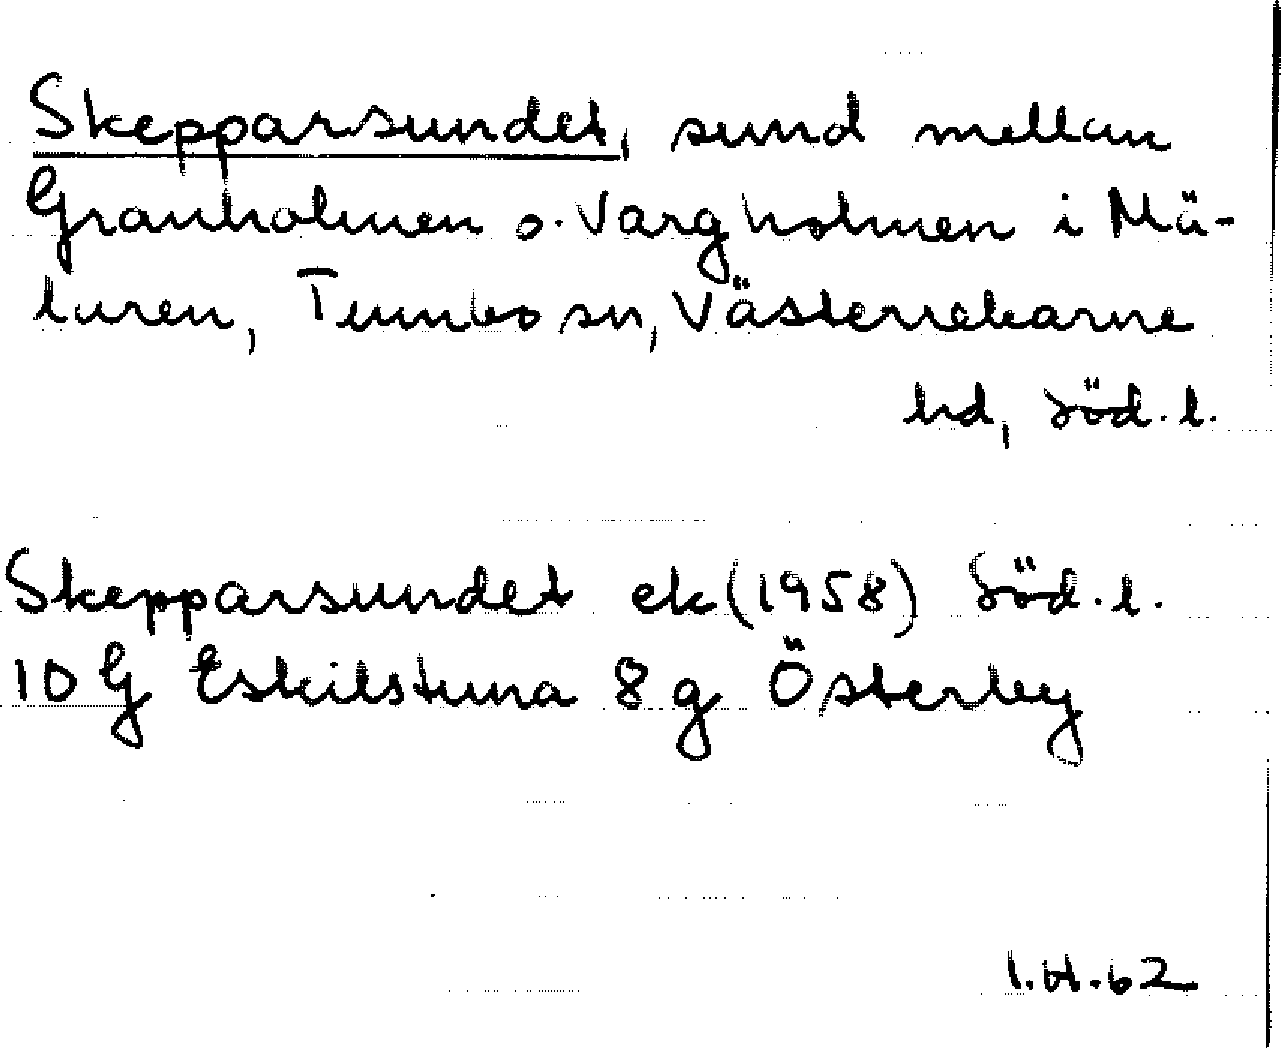 Skepparsundet, sund mellan
Granholmen o. Vargholmen i Mä-
laren, Tumbo sn, Västerrekarne
hd, Söd. l.
Skepparsundet ek (1958) Söd. l.
10 G Eskilstuna 8 g Österby
I.H.62